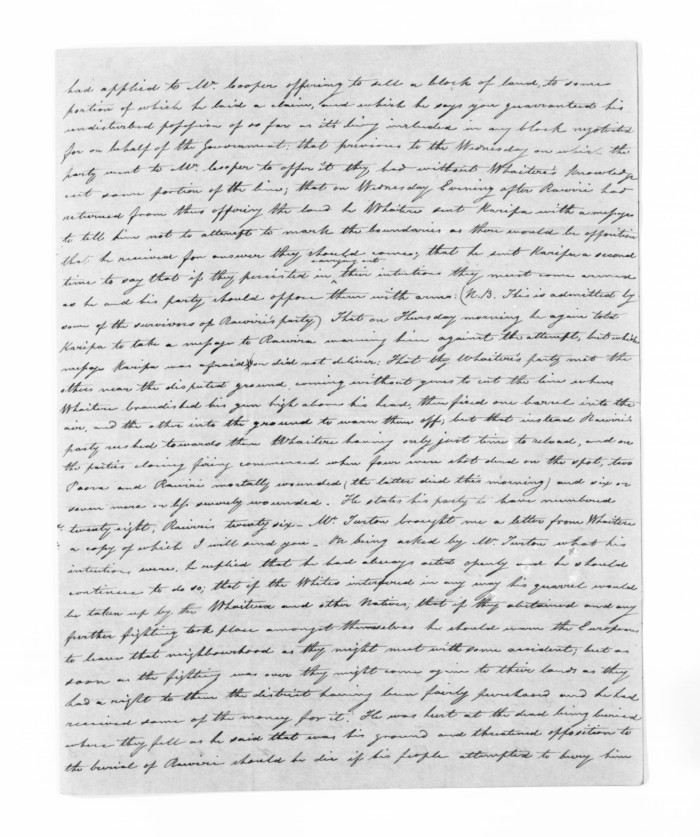 had applied to Mr. Cooper offering to sell a block of land, to some
portion of which he laid a claim, and which he says you guaranteed his
undisturbed possession of so far as its being included in any block negotiated
for on behalf of the Government; that previous to the Wednesday on which the
party went to Mr. Cooper to offer it they had without Whaitere's knowledge
cut some portion of the line; that on Wednesday Evening after Rawiri had
returned from thus offering the land he Whaitere sent Karipa with a message
to tell him not to attempt to mark the boundaries as there would be opposition
that he received for answer they should come; that he sent Karipa a second
time to say that if they persisted in carrying out their intentions they must come armed
as he and his party should oppose them with arms: (N.B. This is admitted by
some of the survivors of Rawiri's party) That on Thursday morning he again told
Karipa to take a message to Rawiri warning him against the attempt, but which
message Karipa was afraid or did not deliver. That they Whaitere's party met the
others near the disputed ground, coming without guns to cut the line where
Whaitere brandished his gun high above his head, then fired one barrel into the
air, and the other into the ground to warn them off; but that instead Rawiri's
party rushed towards them Whaitere having only just time to reload, and on
the parties closing firing commenced when four were shot dead on the spot, two
Paora and Rawiri mortally wounded (the latter died this morning) and six or
seven more or less severely wounded. He states his party to have numbered
twenty eight, Rawiri's twenty six - Mr. Turton brought me a letter from Whaitere
a copy of which I will send you - On being asked by Mr. Turton what his
intentions were, he replied that he had always acted openly and he should
continue to do so; that if the Whites interfered in any way his quarrel would
be taken up by the Whaitere and other Natives, that if they abstained and any
further fighting took place amongst themselves he should warn the Europeans
to leave that neighbourhood as they might meet with some accident; but as
soon as the fighting was over they might come again to their lands as they
had a right to them the district having been fairly purchased and he had
received some of the money for it. He was hurt at the dead being buried
where they fell as he said that was his ground and threatened opposition to
the burial of Rawiri should he die if his people attempted to bury him